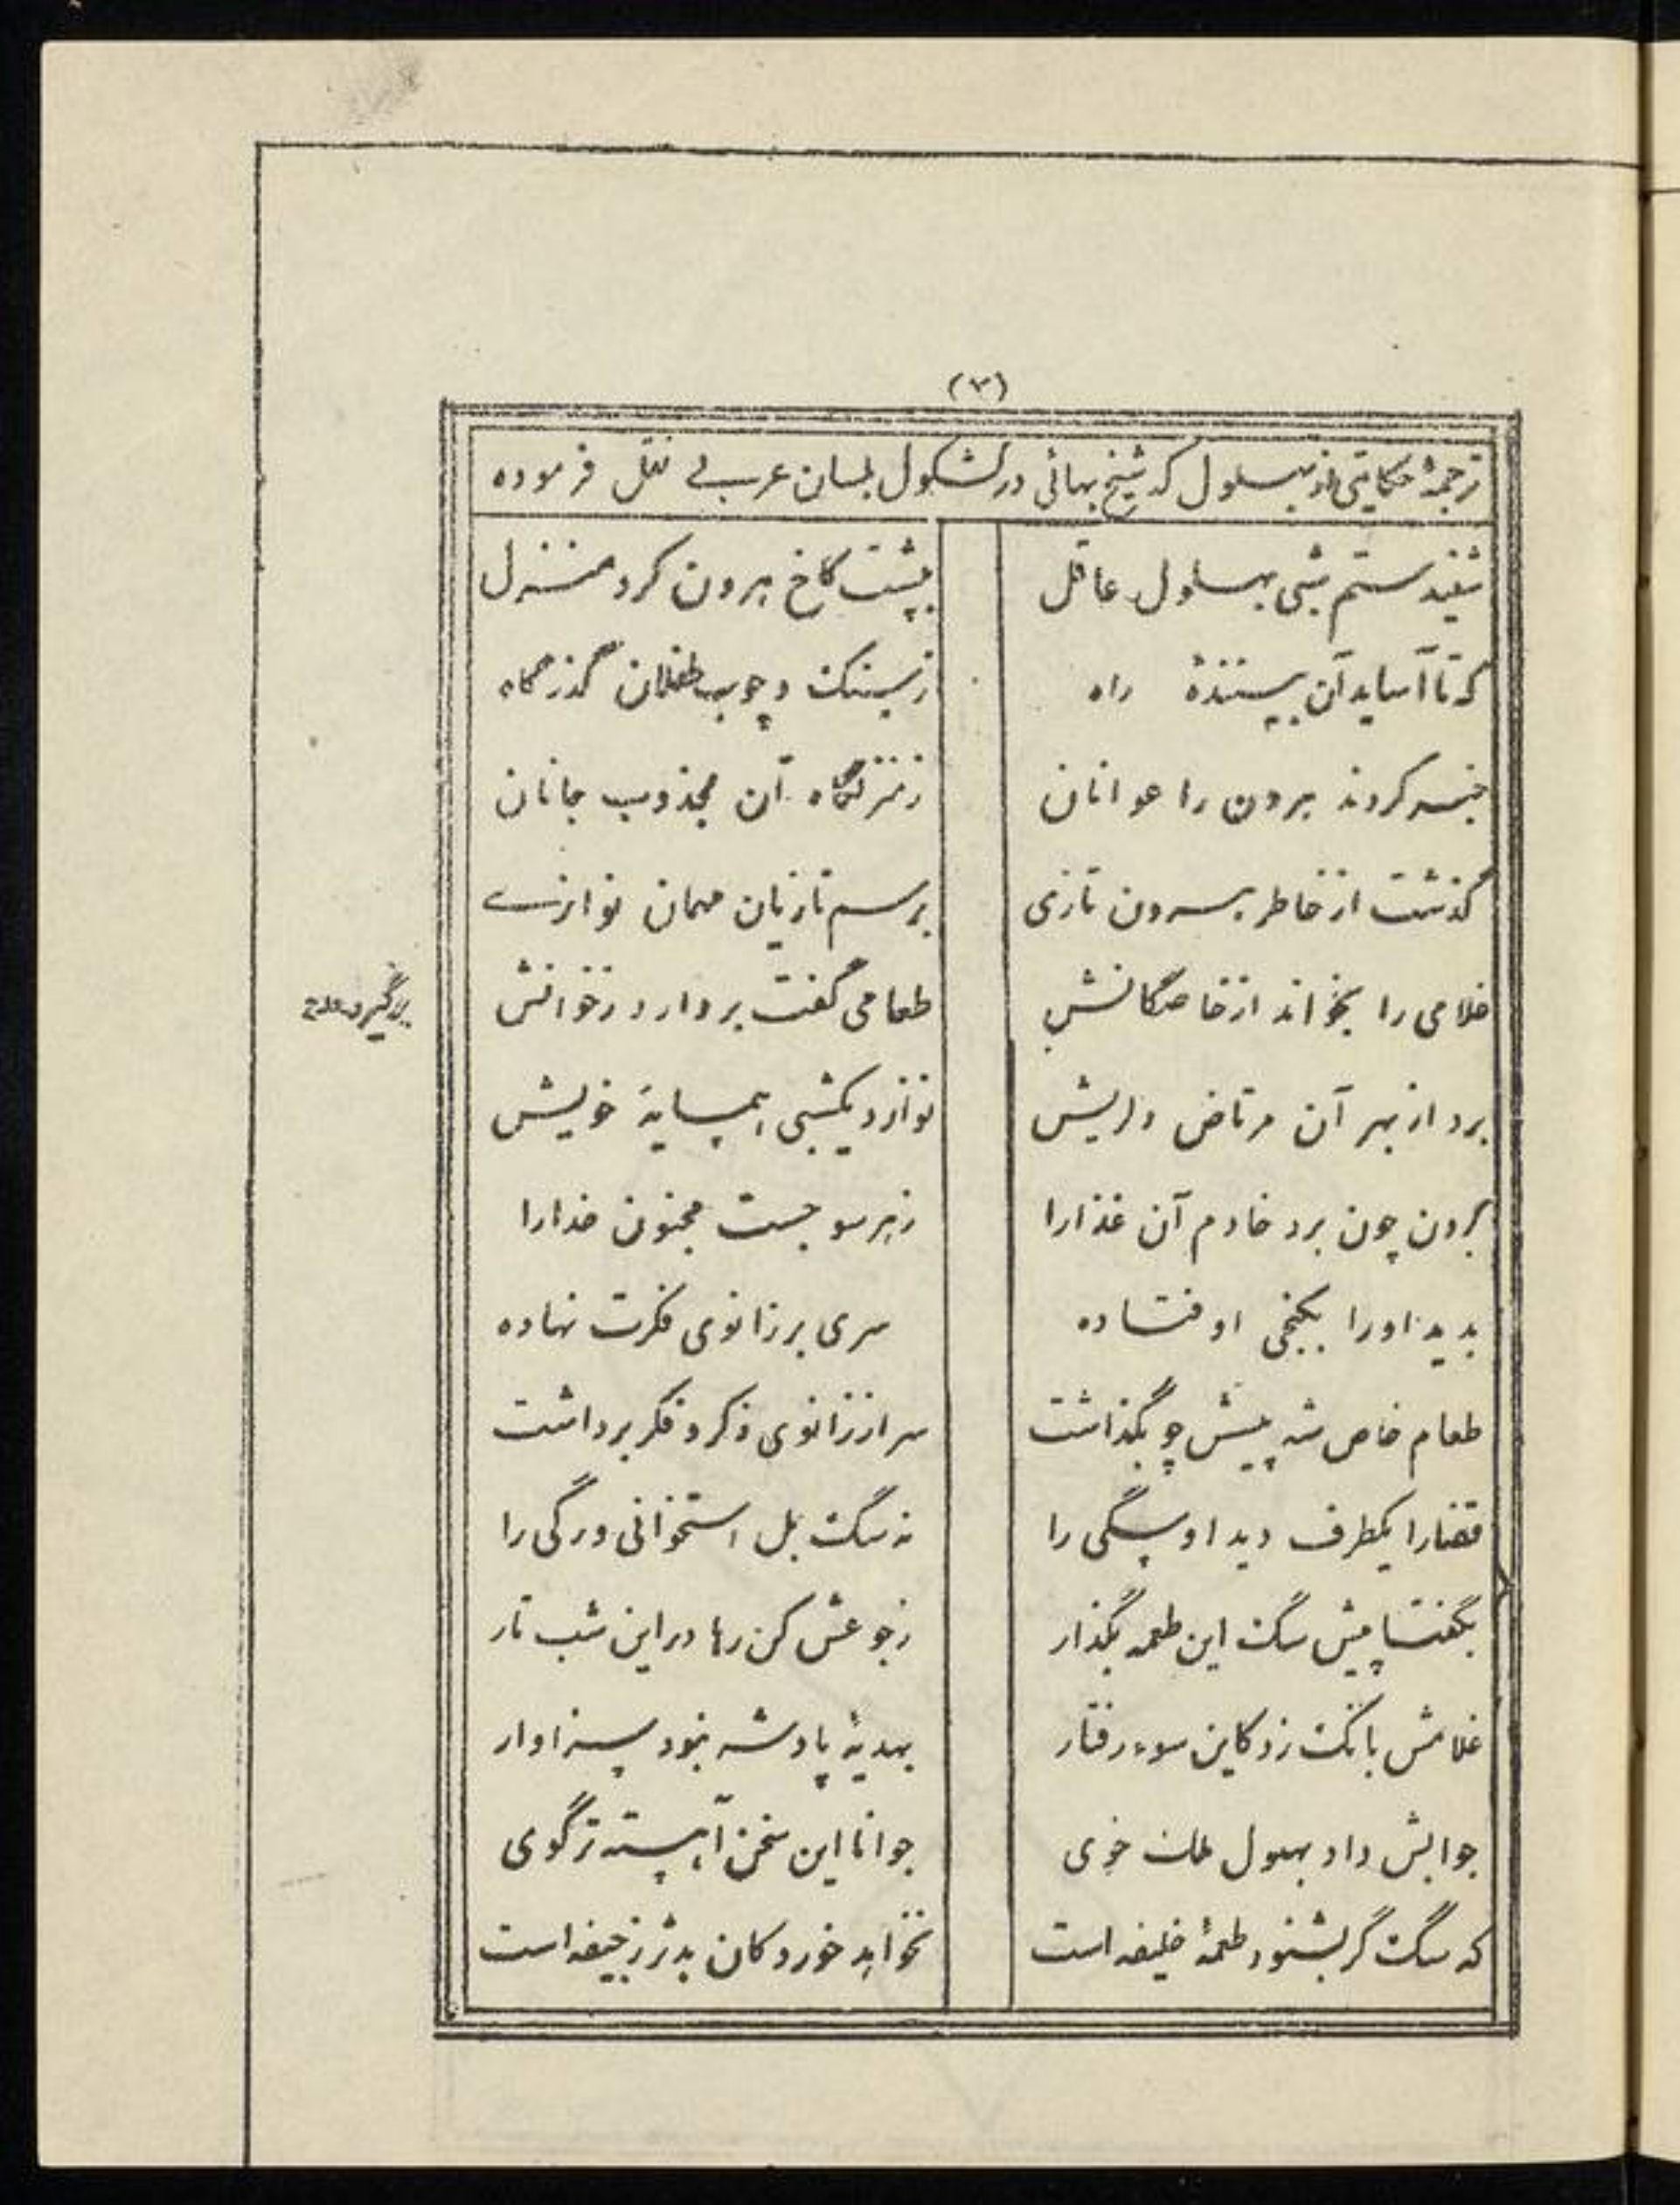 (۳)
ترجمهٔ حکایتی از بهلول که شیخ بهائی در کشکول بلسان عربی نقل فرموده
شنیدستم شبی بهلول عاقل بپشت کاخ هرون کرد منزل
که تا آساید آن بیننده راه ز سنگ و چوب طفلان گذرگاه
خبر کردند هرون را عوانان ز منزلگاه آن مجذوب جانان
گذشت از خاطر هرون تازی برسم تازیان مهمان نوازی
غلامی را بخواند از خاصگانش طعامی گفت بردارد ز خوانش
برد از بهر آن مرتاض دلریش نوازد یکشبی همسایهٔ خویش
برون چون برد خادم آن غذا را ز هر سو جست مجنون خدا را
بدید او را بکنجی اوفتاده سری بر زانوی فکرت نهاده
طعام خاص شه پیشش چو بگذاشت سر از زانوی ذکر و فکر برداشت
قضا را یکطرف دید او سگی را نه سگ بل استخوانی و رگی را
بگفتا پیش سگ این طعمه بگذار ز جوعش کن رها در این شب تار
غلامش بانگ زد کاین سوء رفتار بهدیهٔ پادشه نبود سزاوار
جوابش داد بهلول ملک خوی جوانا این سخن آهسته تر گوی
که سگ گر بشنود طعمهٔ خلیفه است نخواهد خورد کان بدتر ز جیفه است
برگیرد